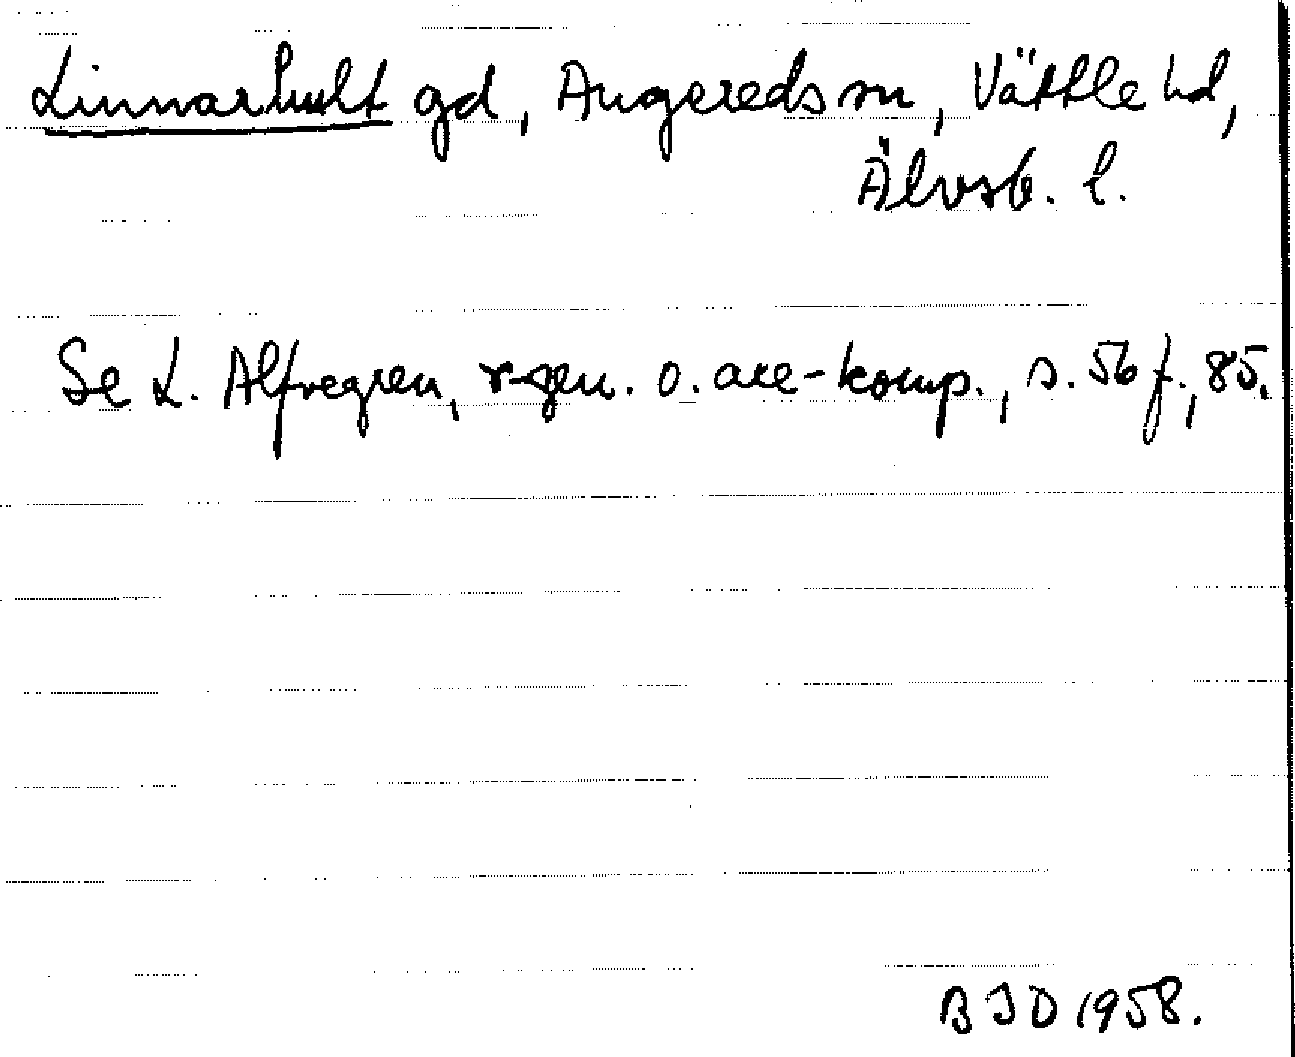 Linnarhult gd, Angereds sn, Vättle hd,
Älvsb. l.
Se L. Alfvegren, r-gen. o. are-komp., s. 56 f., 85.
BJD 1958.